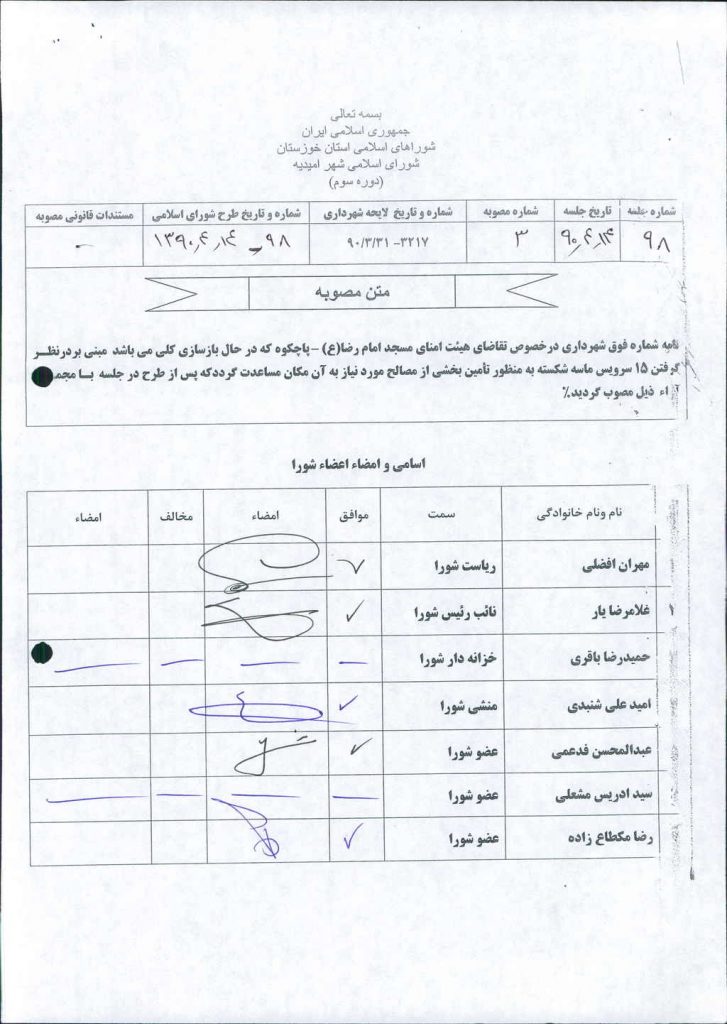 بسمه تعالی
جمهوری اسلامی ایران
شوراهای اسلامی استان خوزستان
شورای اسلامی شهر امیدیه
(دوره سوم)
شماره جلسه	تاریخ جلسه	شماره مصوبه	شماره و تاریخ لایحه شهرداری	شماره و تاریخ طرح شورای اسلامی	مستندات قانونی مصوبه
۹۸	۹۰,۴,۱۴	۳	۳۲۱۷- ۹۰/۳/۳۱	۹۸ _ ۱۳۹۰,۴,۱۴	-
متن مصوبه
نامه شماره فوق شهرداری درخصوص تقاضای هیئت امنای مسجد امام رضا(ع) – پاچکوه که در حال بازسازی کلی می باشد مبنی بردرنظر
گرفتن ۱۵ سرویس ماسه شکسته به منظور تأمین بخشی از مصالح مورد نیاز به آن مکان مساعدت گرددکه پس از طرح در جلسه با
ذیل مصوب گردید.٪
اسامی و امضاء اعضاء شورا
نام ونام خانوادگی	سمت	موافق	امضاء	مخالف	امضاء
مهران افضلی	ریاست شورا	✓
غلامرضا یار	نائب رئیس شورا	✓
حمیدرضا باقری	خزانه دار شورا	—	—	—	—
امید علی شنبدی	منشی شورا	✓
عبدالمحسن فدعمی	عضو شورا	✓
سید ادریس مشعلی	عضو شورا	—	—	—	—
رضا مکطاع زاده	عضو شورا	✓